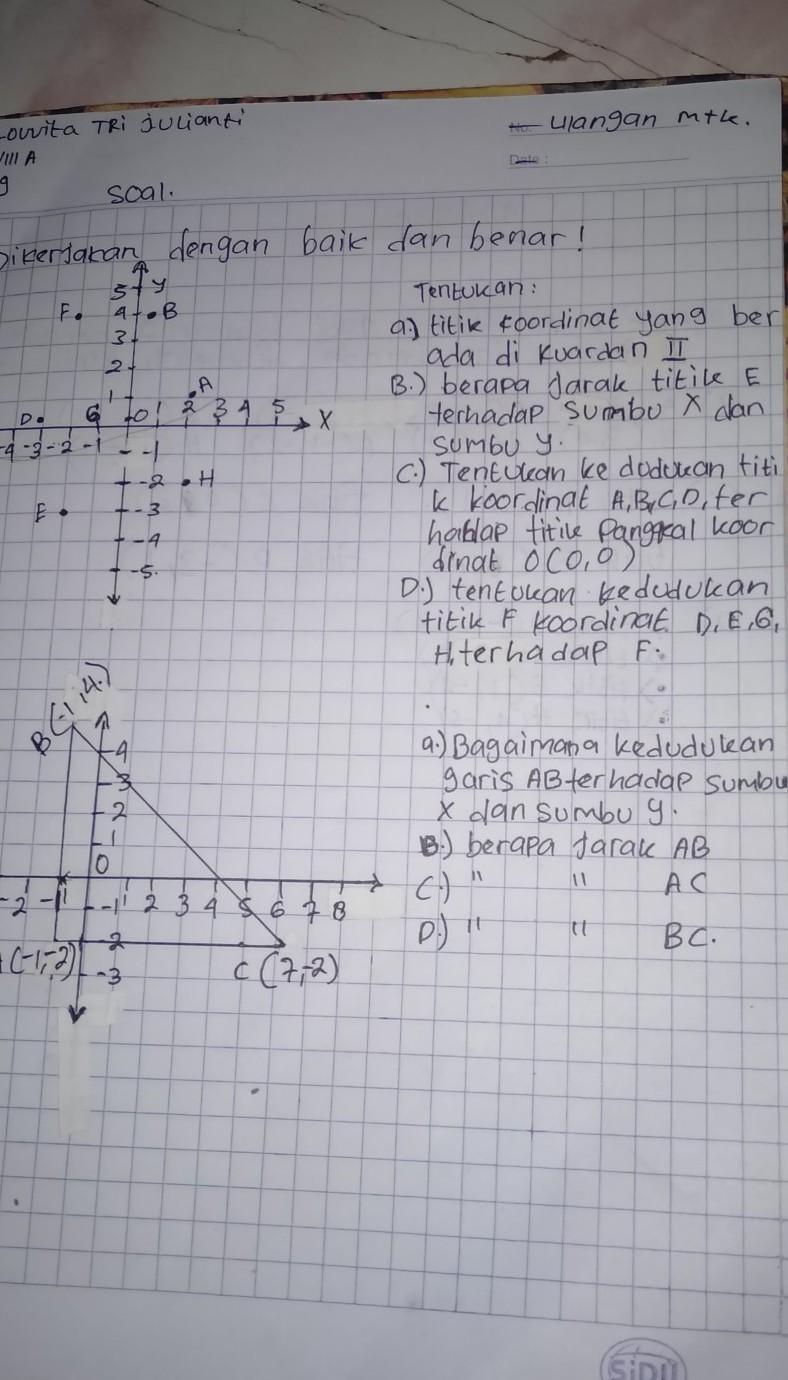 Lowita TRi Julianti
VIII A
9
No. ulangan mtk.
Date :
Soal.
Dikerjakan dengan baik dan benar!
5 y
F. 4 B
3
2
1 A
D. G 0 1 2 3 4 5 X
-4 -3 -2 -1 -1
-2 H
E -3
-4
-5.
Tentukan :
a.) titik koordinat yang ber
ada di kuardan II
B.) berapa Jarak titik E
terhadap Sumbu X dan
Sumbu y.
C.) Tentukan ke dudukan titi
k koordinat A,B,C,D, ter
hadap titik Pangkal koor
dinat O(0,0)
D.) tentukan kedudukan
titik F koordinat D, E, G,
H, terhadap F.
B (-1,4.)
4
3
2
1
0
-2 -1 -1 1 2 3 4 5 6 7 8
-2
(-1,-2) -3 C (7,-2)
a.) Bagaimana kedudukan
garis AB terhadap Sumbu
X dan sumbu y.
B.) berapa Jarak AB
C.) " " AC
D.) " " BC.
SiDU